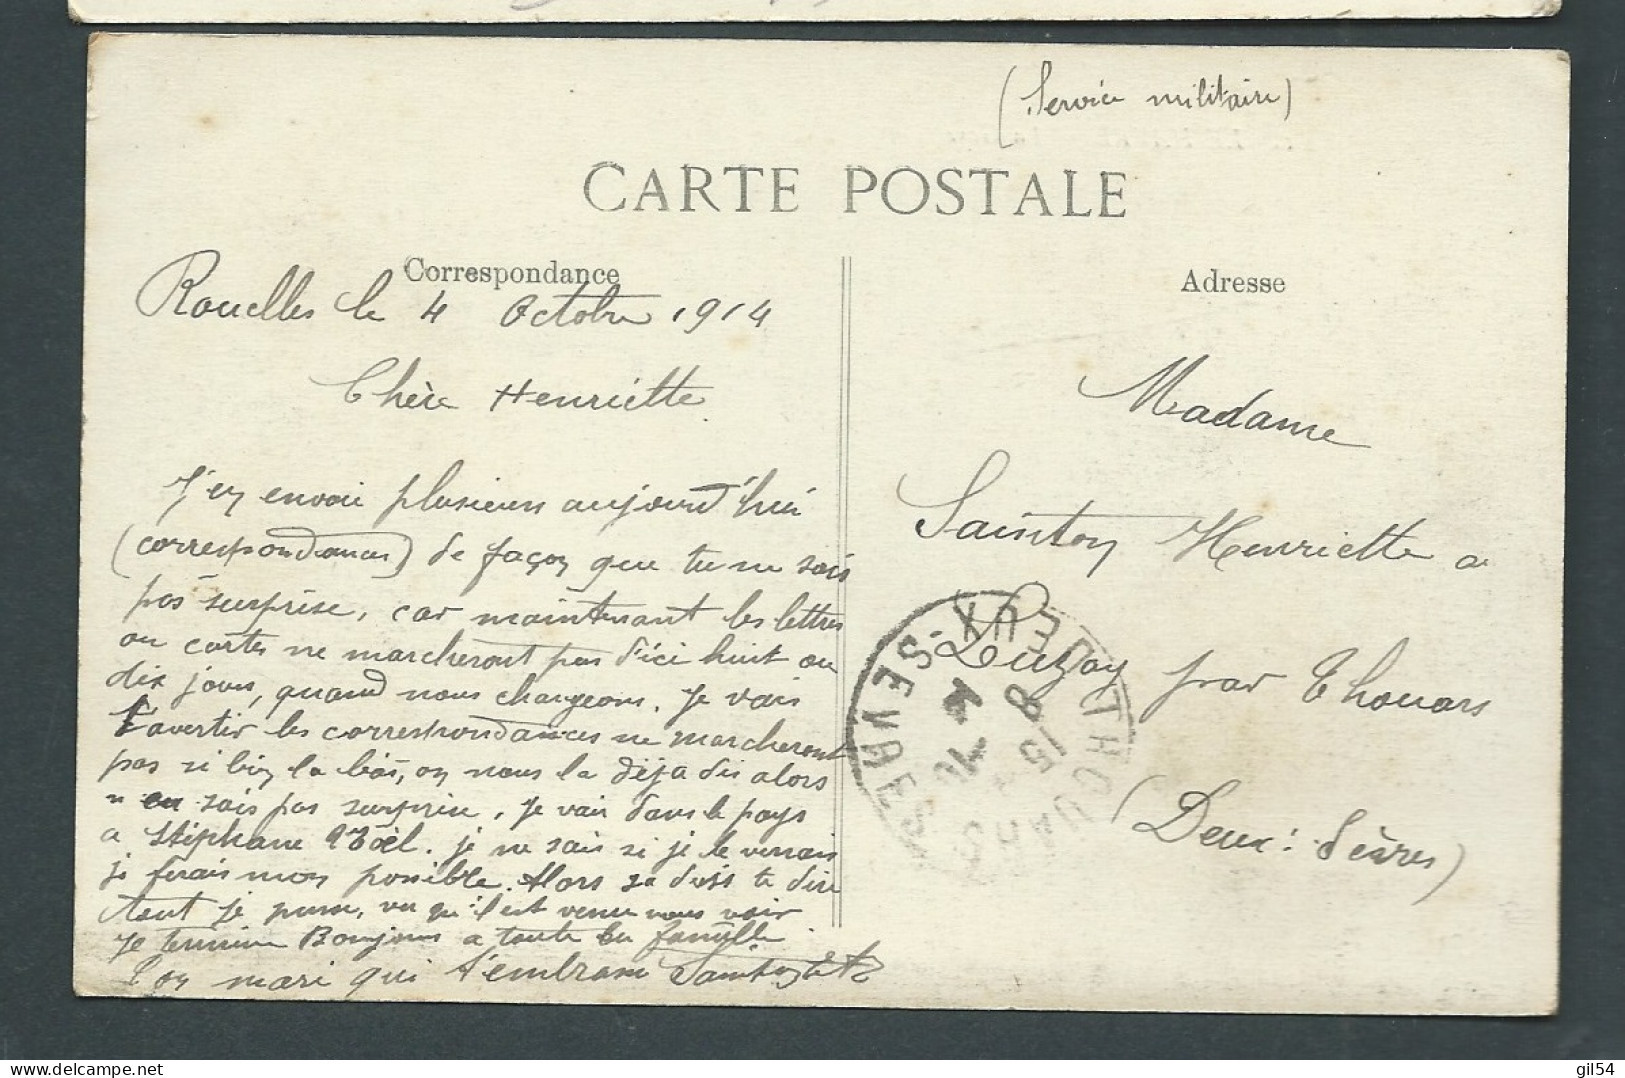 (Service militaire)
CARTE POSTALE
Correspondance
Adresse
Rouelles le 4 Octobre 1914
Chère Henriette
J'en envoie plusieurs aujourd'hui
(correspondances) de façon que tu ne sois
pas surprise, car maintenant les lettres
ou cartes ne marcheront pas d'ici huit ou
dix jours, quand nous changeons. Je vais
t'avertir les correspondances ne marcheront
pas si bien la bas, on nous la déja dis alors
n en sois pas surprise, Je vais dans le pays
a Stéphane Noèl. je ne sais si je le verrais
je ferais mon possible. Alors sa doit te dire
tout je pense, vu qu'il est venu nous voir
Je termine Bonjours a toute la famille
Ton mari qui t'embrasse Sainton
Madame
Sainton Henriette a
Luzay par Thouars
(Deux-Sèvres)
THOUARS
DEUX-SEVRES
gil54